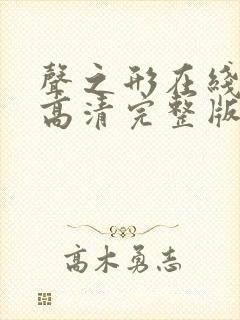 聲之形在綫
高清完整版
高木勇志